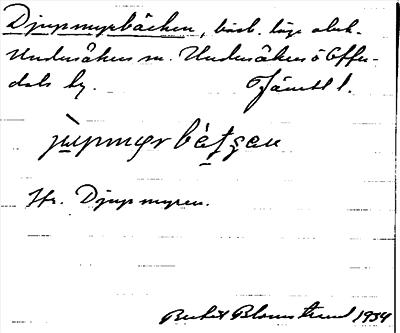 Djupmyrbäcken, bäck. läge obek.
Undersåkers sn. Undersåkers o Offer-
dals by. Jämtl l.
jùpmyr bètʂen
Fr. Djupmyren.
Bertil Blomstrand 1934